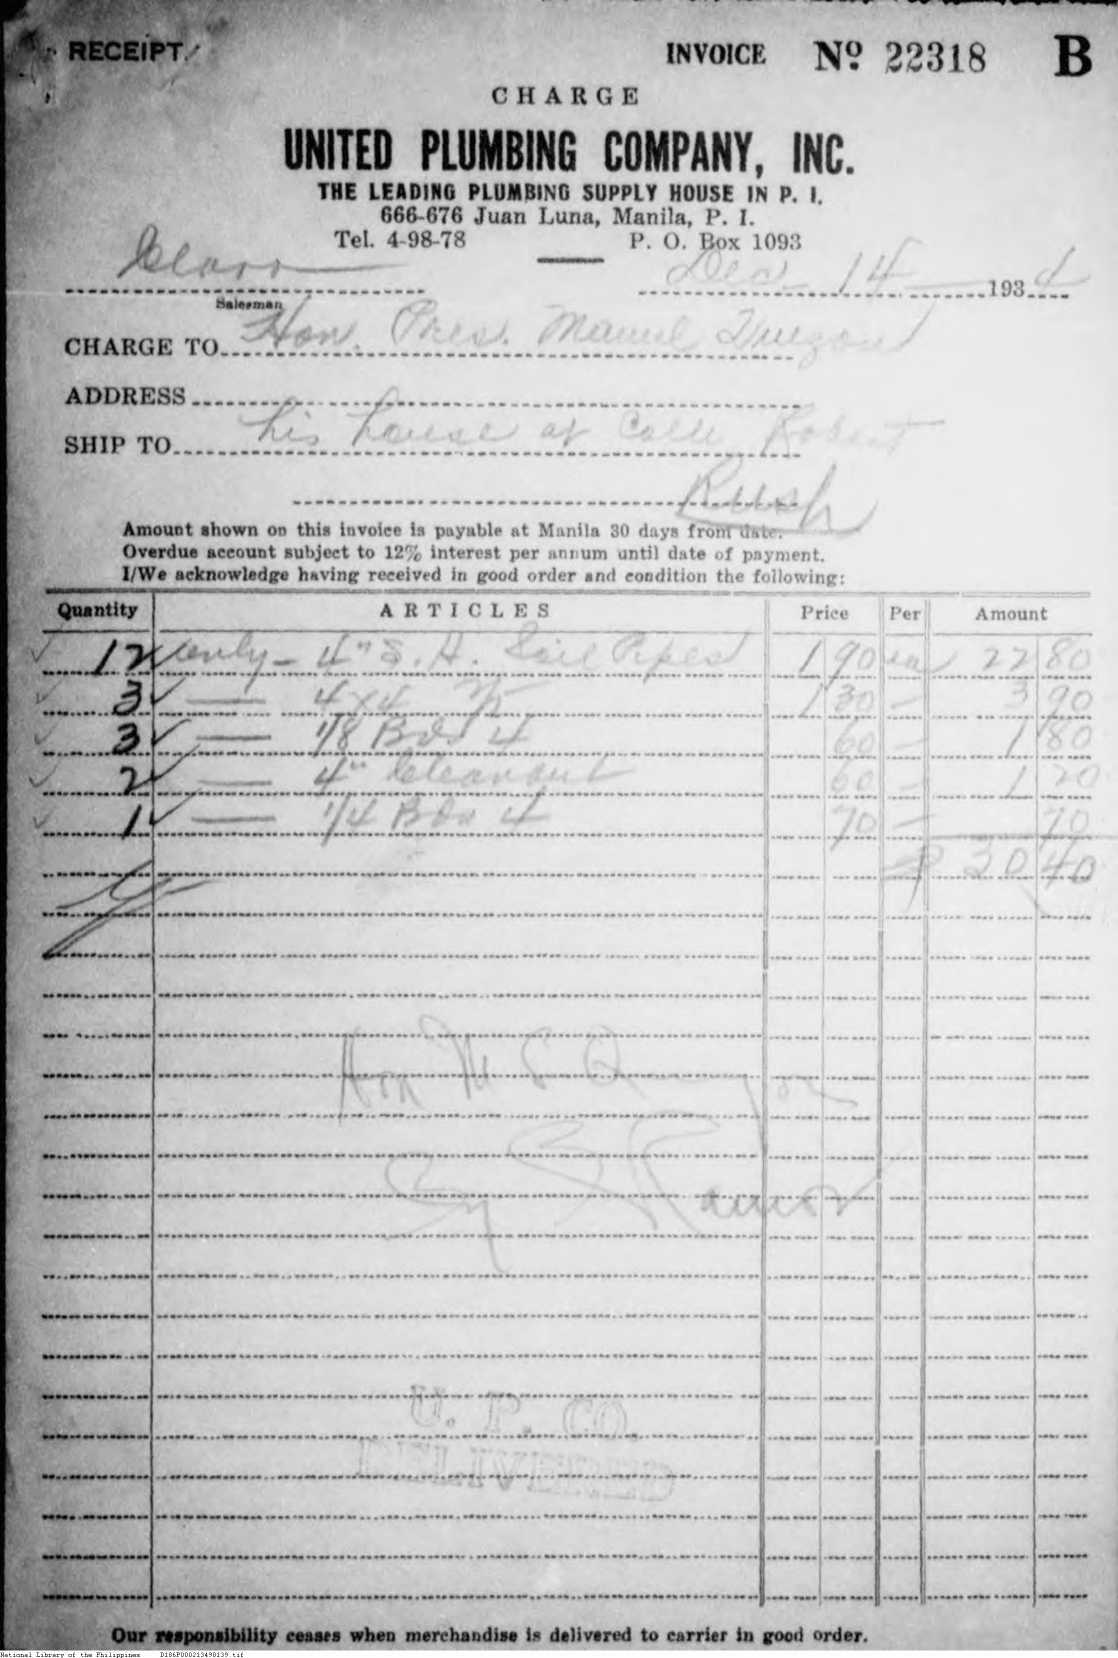 RECEIPT
INVOICE Nº 22318 B
CHARGE
UNITED PLUMBING COMPANY, INC.
THE LEADING PLUMBING SUPPLY HOUSE IN P. I.
666-676 Juan Luna, Manila, P. I.
Tel. 4-98-78 P. O. Box 1093
Dec 14 1934
Salesman
CHARGE TO Hon. Pres. Manuel Quezon
ADDRESS
SHIP TO his house at Calle Robert
Rush
Amount shown on this invoice is payable at Manila 30 days from date.
Overdue account subject to 12% interest per annum until date of payment.
I/We acknowledge having received in good order and condition the following:
Quantity ARTICLES Price Per Amount
12 only - 4" S. H. Soil Pipes 1 90 ea 22 80
3 — 4 x 4 Y 1 30 — 3 90
3 — 1/8 Bds 4 60 — 1 80
2 — 4" Cleanout 60 — 1 20
1 — 1/4 Bds 4 70 — 70
₱ 30 40
Hon M L Q
By B Ramos
U. P. CO.
DELIVERED
Our responsibility ceases when merchandise is delivered to carrier in good order.
National Library of the Philippines D186P000213498139.tif